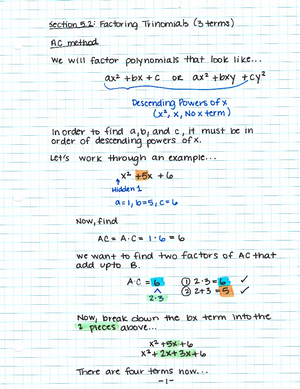 Section 5.2: Factoring Trinomials (3 terms)
AC method
We will factor polynomials that look like...
ax² + bx + c OR ax² + bxy + cy²
Descending Powers of x
(x², x, No x term)
In order to find a, b, and c, it must be in
order of descending powers of x.
Let's work through an example...
x² + 5x + 6
Hidden 1
a=1, b=5, c=6
Now, find
AC = A·C = 1·6 = 6
we want to find two factors of AC that
add up to B.
A·C = 6 ① 2·3 = 6 ✓
2·3 ② 2+3 = 5 ✓
Now, break down the bx term into the
2 pieces above...
x² + 5x + 6
x² + 2x + 3x + 6
There are four terms now...
-1-